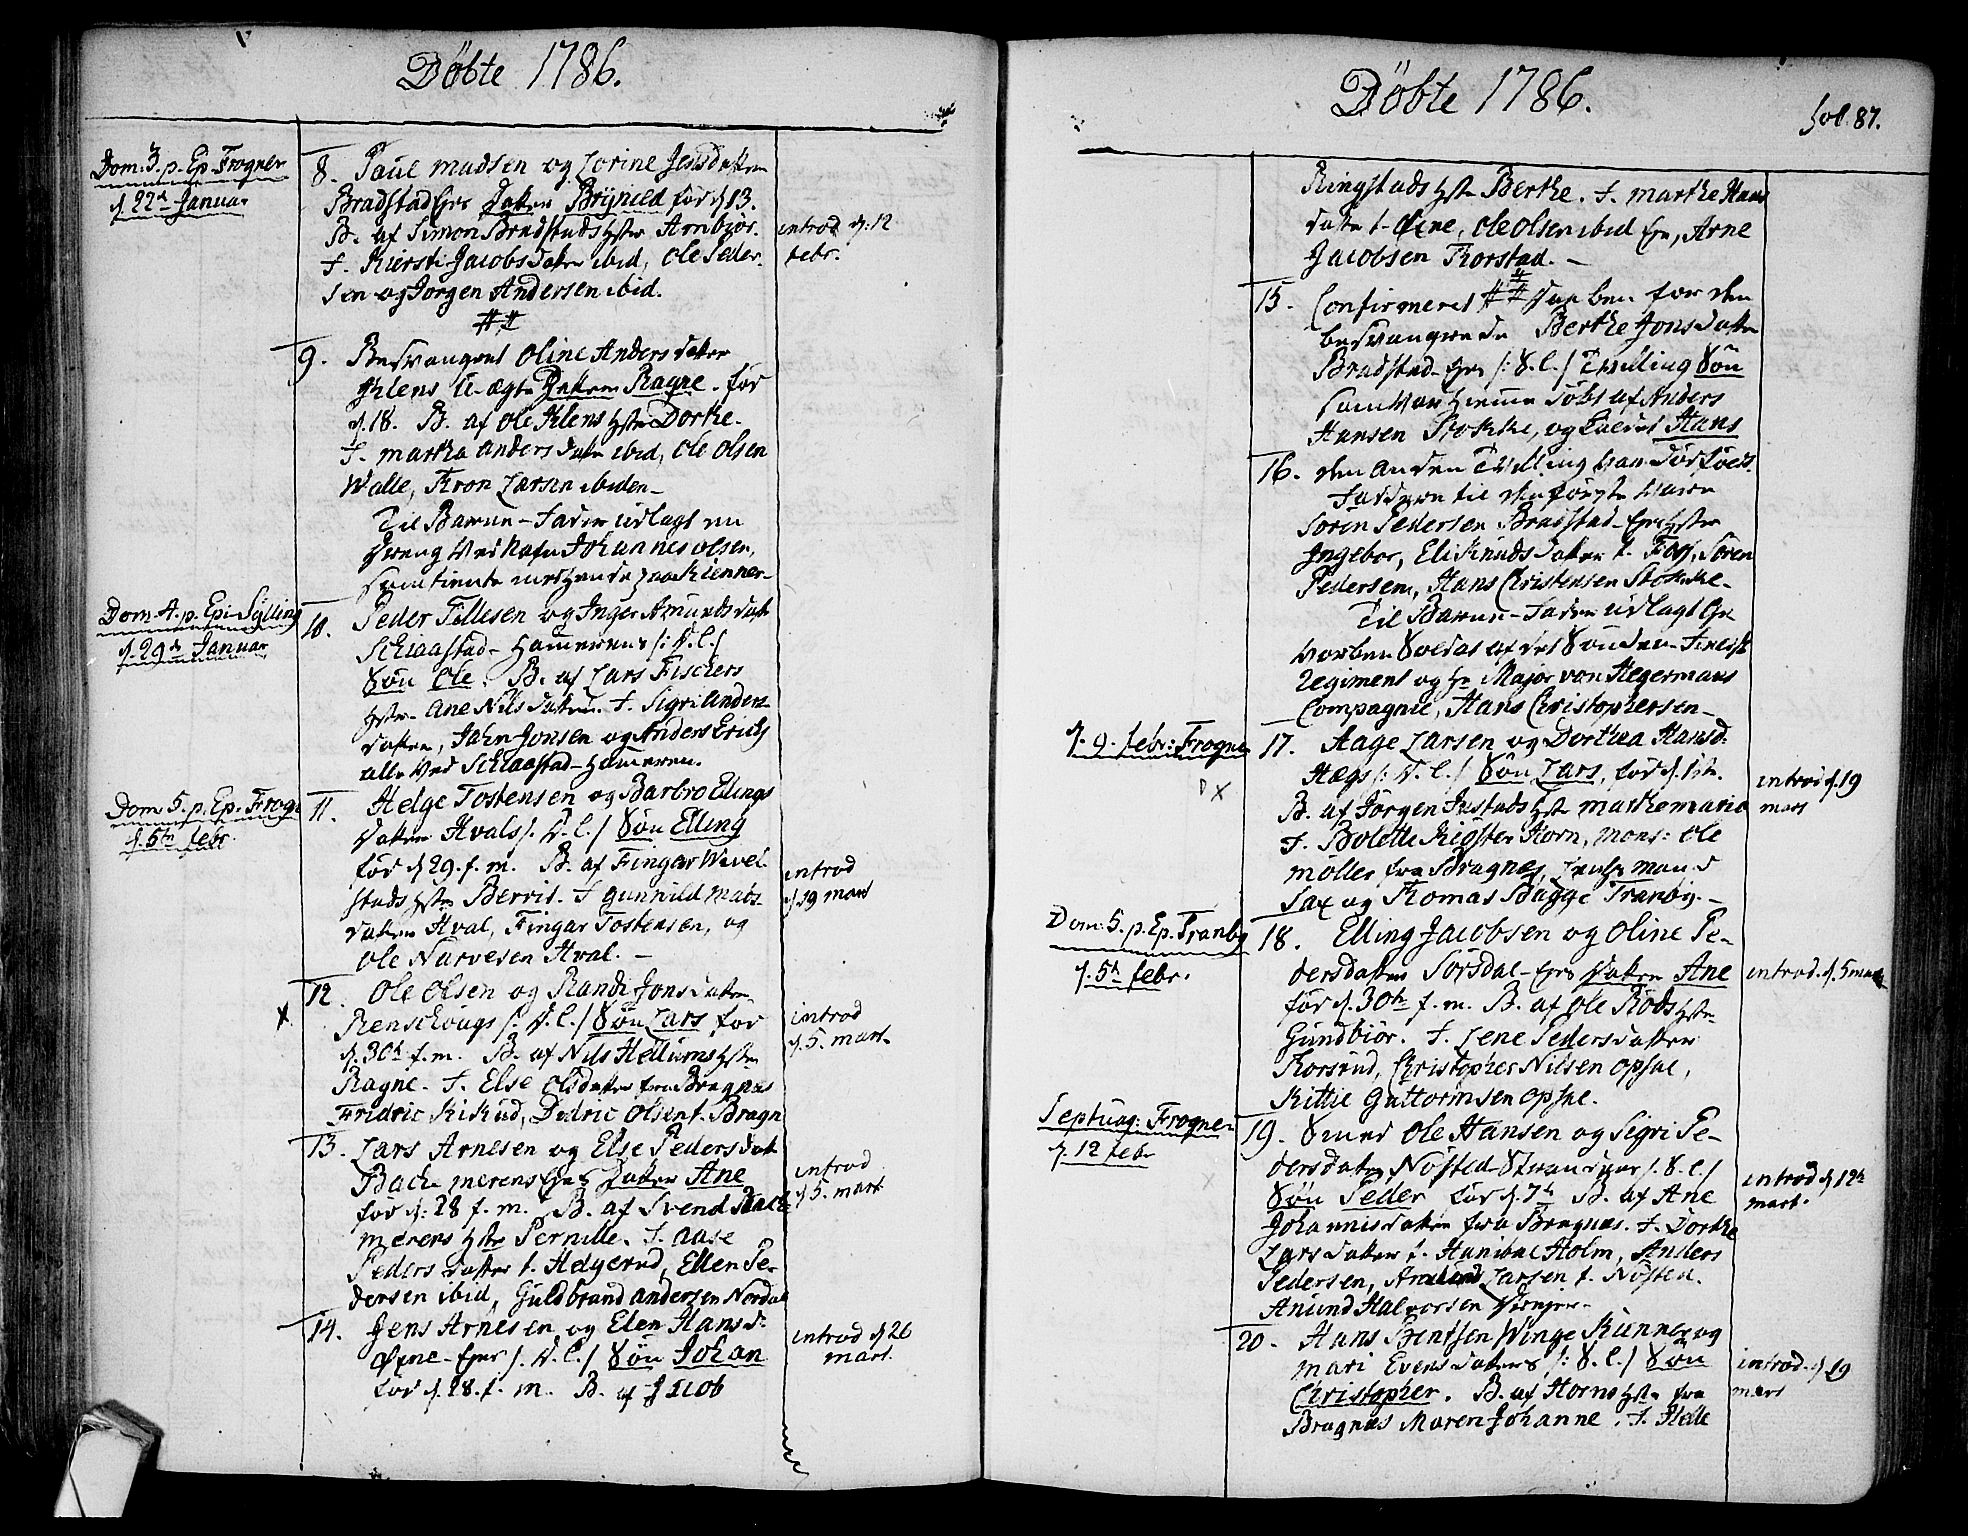 Döbte 1786.
Dom. 3. p. Ep. Frogner
d. 22de Januar
8. Paul Madsen og Lorine Jensdatter
Bradstad Eyes Datter Brynild fød d. 13.
B. af Simon Bradstads Hstr Arnbjør.
F. Kiersti Jacobsdatter ibid, Ole Peder-
sen og Jørgen Andersen ibid.
introd d. 12
febr.
##
9. Besvangret Oline Andersdatter
Ihlens U-ægte Datter Ragne. fød
d. 18. B. af Ole Ihlens Hstr Dorthe.
F. Martha Andersdatter ibid, Ole Olsen
Walle, Tron Larsen ibiden
Til Barne-Fader udlagt en
Dreng ved Nafn Johannes Olsen,
Dom. 4. p. Epi. Sylling
d. 29de Januar
10. Peder Tollesen og Inger Amundsdatt
Schiaastad-Hameren /: V.l./
Søn Ole. B. af Lars Fischers
Hstr Ane Nilsdatter. F. Sigri Anders-
datter, Jahn Jonsen og Anders Erichs
alle ved Schiaastad-Hameren.
Dom. 5. p. Ep. Frogn
d. 5te febr.
11. Helge Tostensen og Barbro Elings
datter Hvals /: V.l./ Søn Elling
fød d. 29. f. m. B. af Fingar Wevel-
stads Hstr Berrit. F. Gunnild Mads-
datter Hval, Fingar Tostensen, og
Ole Narvesen Hval.
introd
d. 19 mart
12. Ole Olsen og Randi Jonsdatter
Renschougs /: V.l./ Søn Lars fød
d. 30te f. m. B. af Nils Hellums Hstr
Ragne. F. Else Olsdatter fra Bragnæs
Fridric Kikud, Didric Olsen f. Bragn
x
introd
d. 5. mart.
13. Lars Arnesen og Else Pedersdatt
Bachemerens Eyes Datter Ane
fød d. 28 f. m. B. af Svend Bache-
merens Hstr Pernille. F. Aase
Pedersdatter f. Helgerud, Ellen Pe-
dersen ibid, Guldbrand Andersen Nordal
introd
d. 5. mart
14. Jens Arnesen og Elen Hansd:
Øyne-Eyes /: V.l./ Søn Johan
fød d. 28. f. m. B. af Jacob
introd d. 26
mart.
Döbte 1786.
fol. 87.
Ringstads Hstr Berthe. F. Marthe Hans
datter f. Øine, Ole Olsen ibid Eye, Arne
Jacobsen Torstad.
15. Confirmeret ## Daaben for den
besvangrede Berthe Jonsdatter
Bradstad-Eyes /: S.l./ Tvilling Søn
som var hiemme døbt af Anders
Hansen Stokke, og kaldet Hans
16. den anden Tvilling var dødfød.
Faddere til den første vare
Søren Pedersen Bradstad-Eyes Hstr
Ingebor, Eli Knudsdatter f. Foss, Søren
Pedersen, Hans Christensen Stokke.
Til Barne-Fader udlagt Ge-
vorben Soldat af det Søndenfieldsk
Regiment og Hr Major von Hegermans
Compagnie, Hans Christophersen
d. 9. febr: Frogner
17. Aage Larsen og Dorthea Hansd:
Hægs /: V.l./ Søn Lars, fød d. 1ste.
B. af Jørgen Justads Hstr Marthe Maria
F. Bolette Kigster Horn, Mons: Ole
Møller fra Bragnes, Lensmand
Sax og Thomas Bagge Tranby.
x
introd d. 19
mart
Dom. 5. p. Ep. Tranby
d. 5te febr.
18. Elling Jacobsen og Oline Pe-
dersdatter Sørsdal-Eyes Datter Ane
fød d. 30te f. m. B. af Ole Røds Hstr
Gundbiør. F. Lene Pedersdatter
Korsrud, Christopher Nilsen Opsal,
Kittil Guttormsen Opsal.
introd. d. 5 mart
Septuag: Frogner
d. 12 febr
19. Smed Ole Hansen og Sigri Pe-
dersdatter Nøsted-Strandsider /: S.l./
Søn Peder fød d. 7de B. af Ane
Johannisdatter fra Bragnæs. F. Dorthe
Larsdatter f. Hanibal Holm, Anders
Pedersen, Amund Larsen f. Nøsted.
Anund Halvorsen
introd d. 12te
mart.
20. Hans Bentsen Winge Kinner og
Mari Evensdatters /: S.l./ Søn
Christopher. B. af Horns Hstr fra
Bragnæs Maren Johanne. F. Helle
introd. d. 19
mart